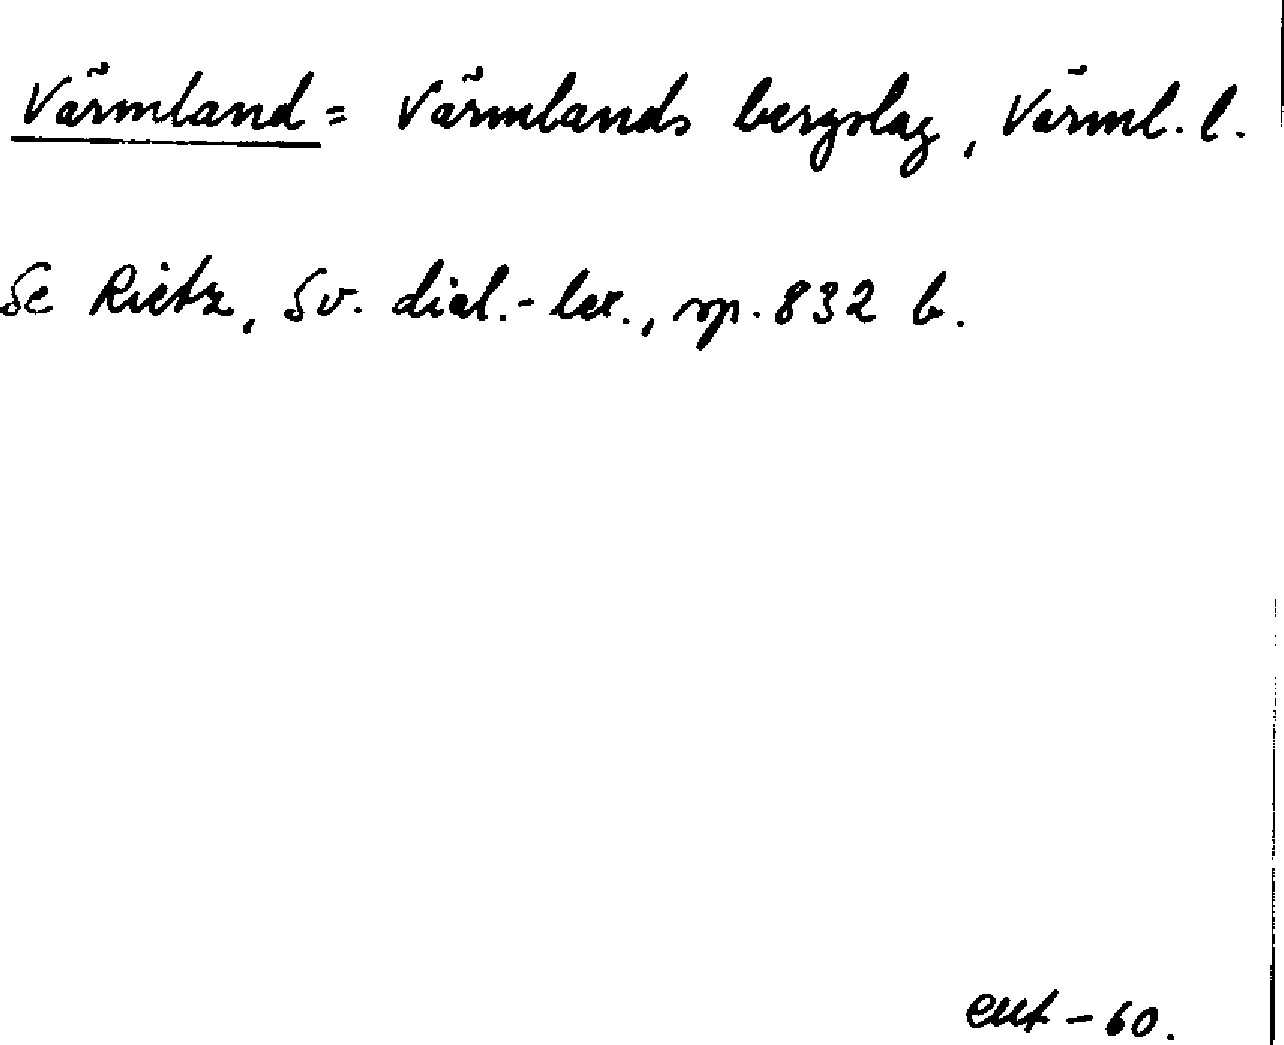 Värmland = Värmlands bergslag, Värml. l.
Se Rietz, Sv. dial.-lex., sp. 832 b.
- 60.